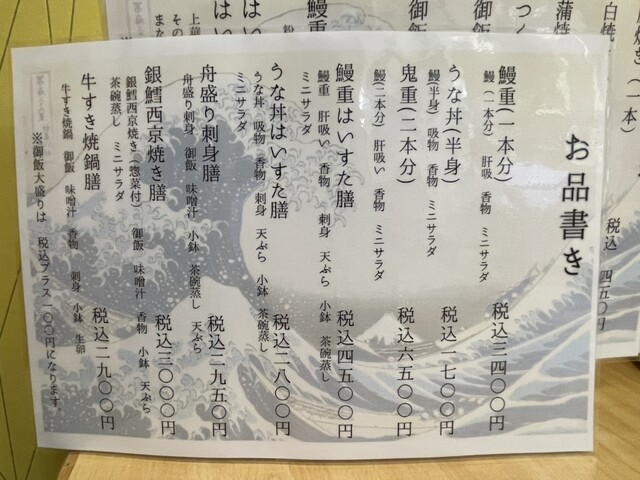 お品書き
鰻重(一本分) 税込三四〇〇円
鰻(一本分) 肝吸 香物 ミニサラダ
うな丼(半身) 税込一七〇〇円
鰻(半身) 吸物 香物 ミニサラダ
鬼重(二本分) 税込六五〇〇円
鰻(二本分) 肝吸い 香物 ミニサラダ
鰻重はいすた膳 税込四五〇〇円
鰻重 肝吸い 香物 刺身 天ぷら 小鉢 茶碗蒸し
ミニサラダ
うな丼はいすた膳 税込二八〇〇円
うな丼 吸物 香物 刺身 天ぷら 小鉢 茶碗蒸し
ミニサラダ
舟盛り刺身膳 税込二九五〇円
舟盛り刺身 御飯 味噌汁 小鉢 茶碗蒸し 天ぷら
銀鱈西京焼き膳 税込三〇〇〇円
銀鱈西京焼き(惣菜付) 御飯 味噌汁 香物 小鉢 天ぷら
茶碗蒸し ミニサラダ
牛すき焼鍋膳 税込二九〇〇円
牛すき焼鍋 御飯 味噌汁 香物 刺身 小鉢 生卵
※御飯大盛りは 税込プラス一〇〇円になります。
税込 四五〇円
白焼
蒲焼
御飯
鰻重
はい
上華
その
また